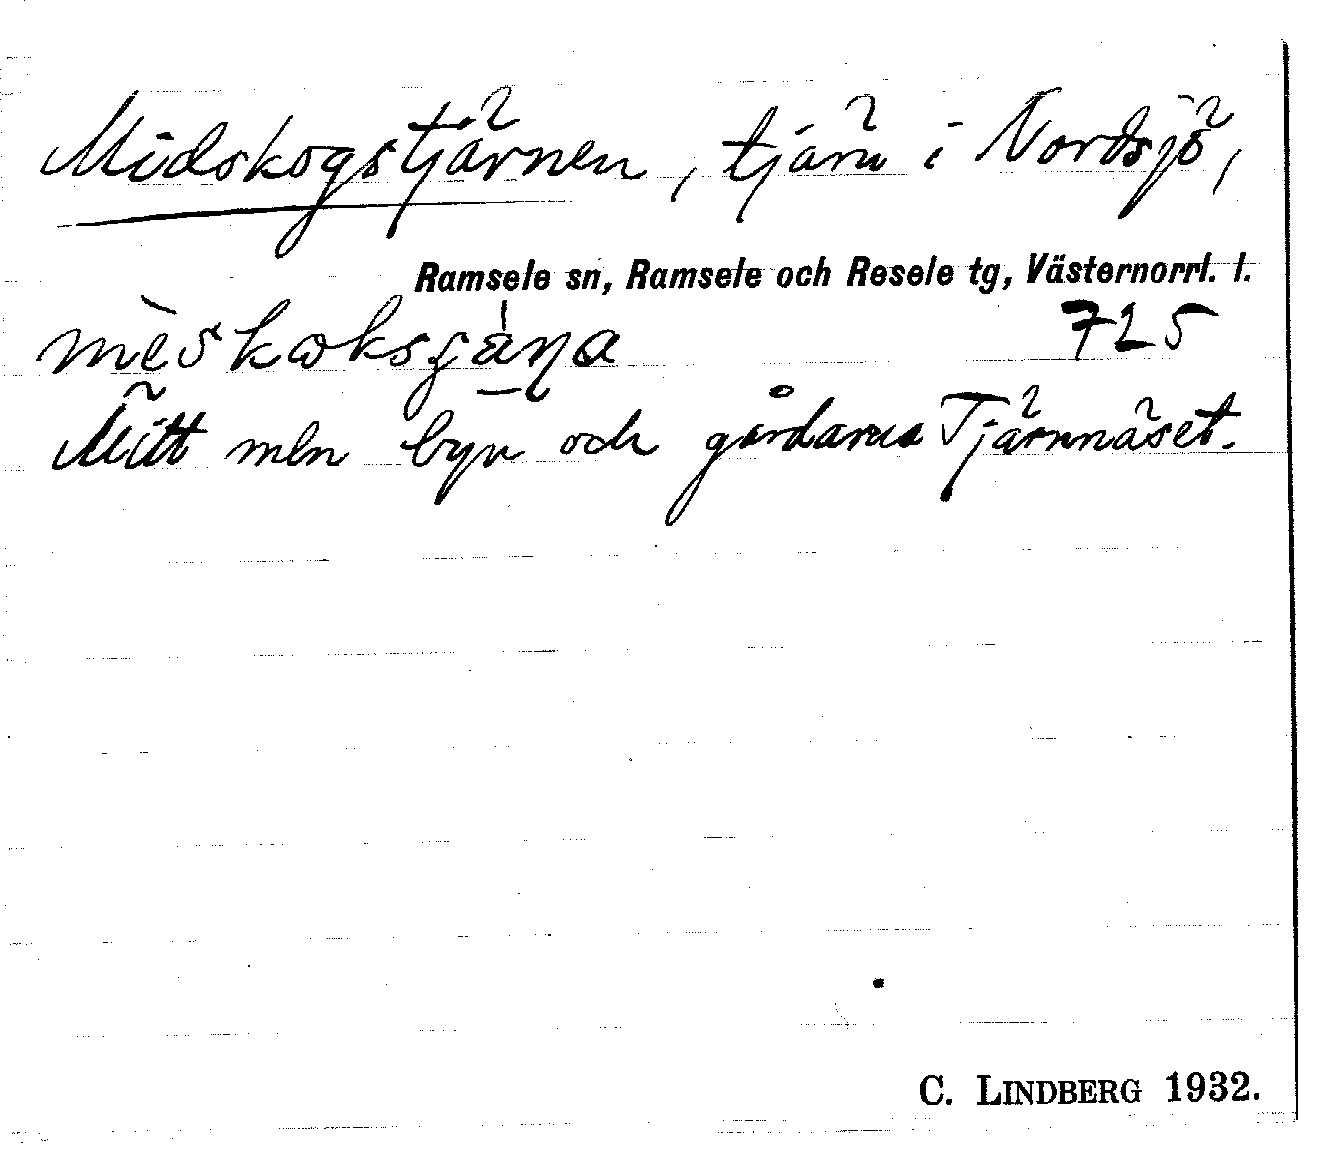 Midskogstjärnen, tjärn i Nordsjö,
Ramsele sn, Ramsele och Resele tg, Västernorrl. l.
725
Mitt mln byn och gårdarna Tjärnnäset.
C. LINDBERG 1932.